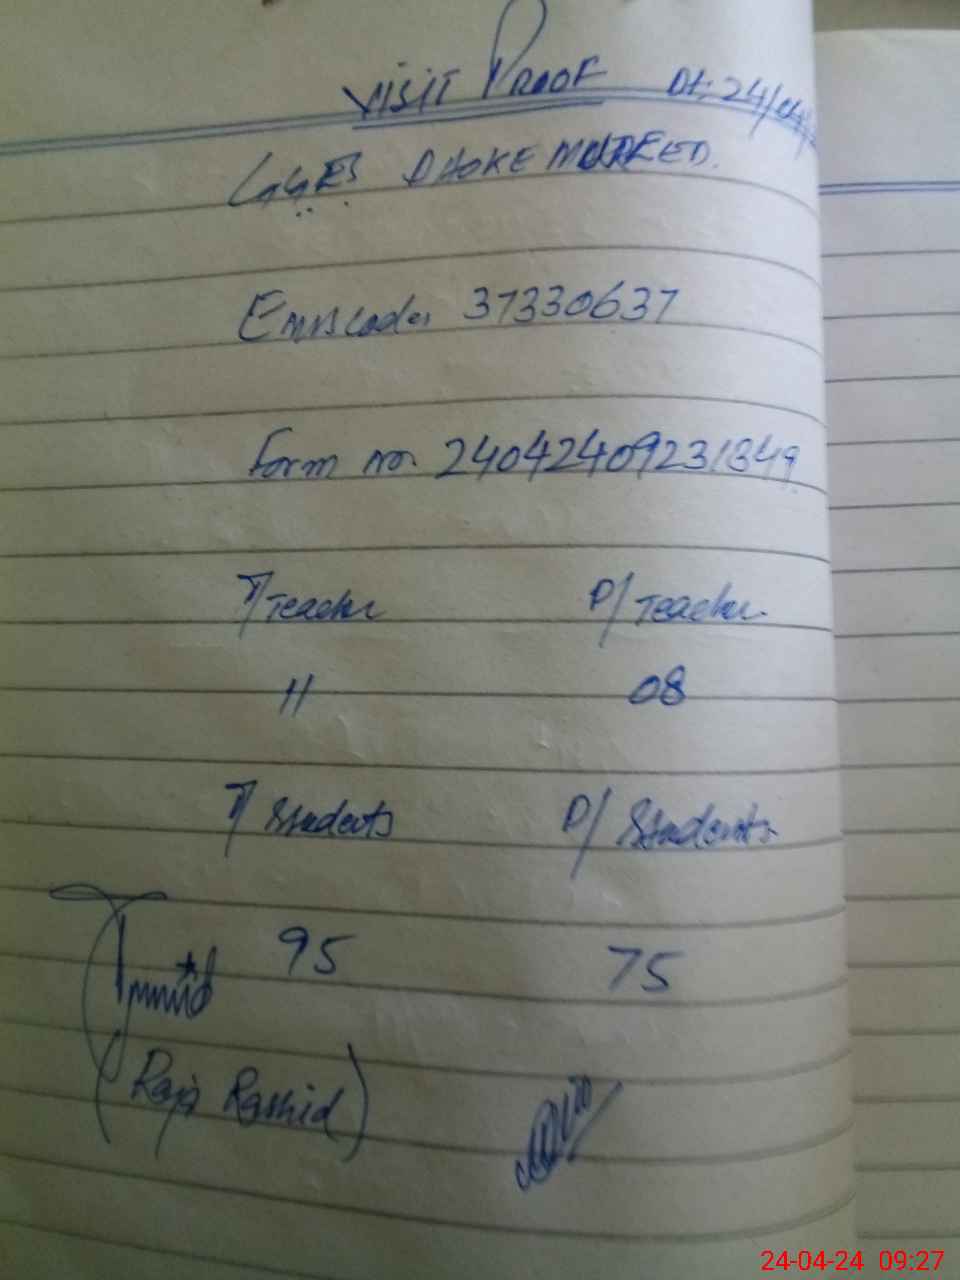 VISIT PROOF Dt: 24/04/
GGES DHOKE MUREED.
Emis code. 37330637
Form no. 24042409231349
T/Teacher P/Teacher.
11 08
T/Students P/Students
95 75
(Raja Rashid)
24-04-24 09:27